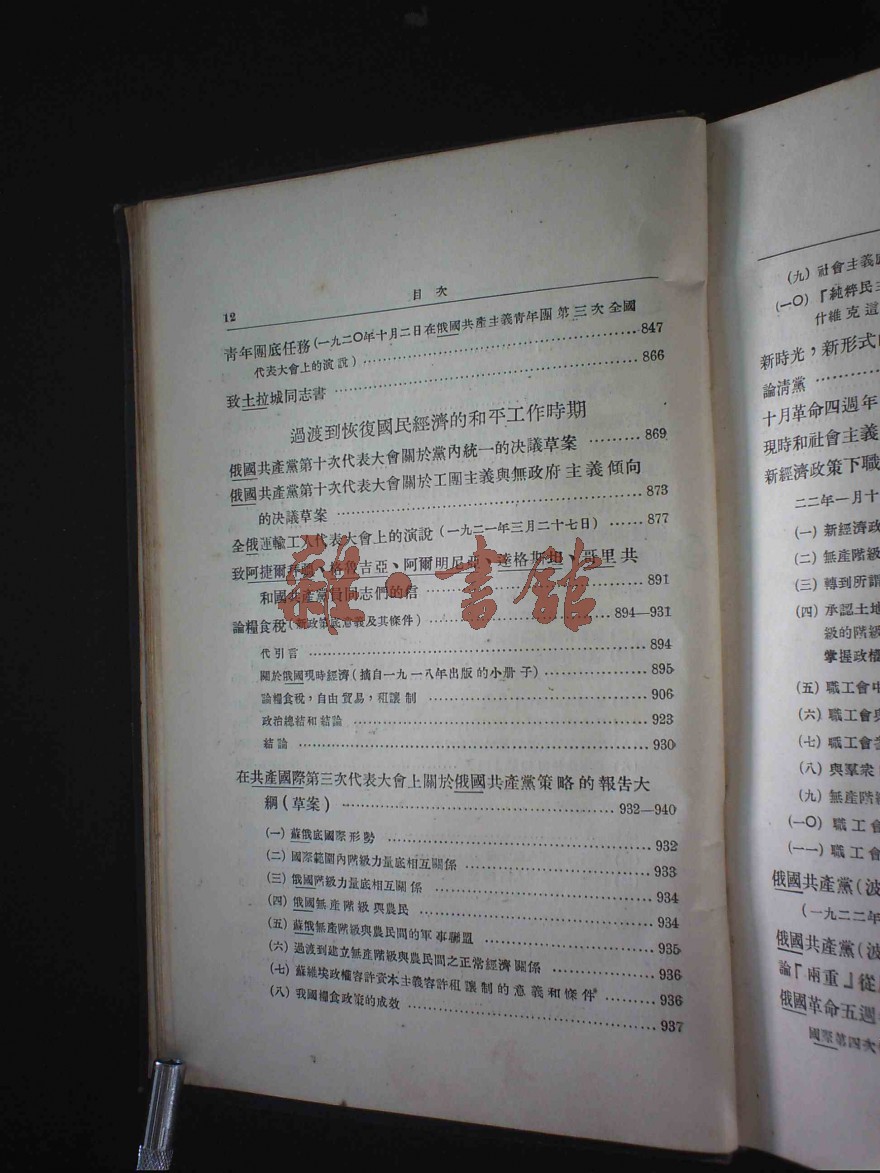 目次
12
青年團底任務(一九二〇年十月二日在俄國共產主義青年團第三次全國
代表大會上的演說)……847
致土拉城同志書……866
過渡到恢復國民經濟的和平工作時期
俄國共產黨第十次代表大會關於黨內統一的决議草案……869
俄國共產黨第十次代表大會關於工團主義與無政府主義傾向
的决議草案……873
全俄運輸工人代表大會上的演說(一九二一年三月二十七日)……877
致阿捷爾拜疆、格魯吉亞、阿爾明尼亞、達格斯坦、哥里共
和國共產黨員同志們的信……891
論糧食稅(新政策底意義及其條件)……894—931
代引言……894
關於俄國現時經濟(摘自一九一八年出版的小册子)……895
論糧食稅,自由貿易,租讓制……906
政治總結和結論……923
結論……930
在共產國際第三次代表大會上關於俄國共產黨策略的報告大
綱(草案)……932—940
(一)蘇俄底國際形勢……932
(二)國際範圍內階級力量底相互關係……933
(三)俄國階級力量底相互關係……934
(四)俄國無產階級與農民……934
(五)蘇俄無產階級與農民間的軍事聯盟……935
(六)過渡到建立無產階級與農民間之正常經濟關係……936
(七)蘇維埃政權容許資本主義容許租讓制的意義和條件……936
(八)我國糧食政策的成效……937
雜·書館
(九)社會主義
(一〇)『純粹民主
什維克這
新時光,新形式
論淸黨……
十月革命四週年
現時和社會主義
新經濟政策下職
二二年一月十
(一)新經濟政
(二)無產階級
(三)轉到所謂
(四)承認土地
級的階級
掌握政權
(五)職工會中
(六)職工會與
(七)職工會
(八)與羣衆
(九)無產階級
(一〇)職工會
(一一)職工會
俄國共產黨(波
(一九二二年
俄國共產黨(波
論『兩重』從
俄國革命五週
國際第四次